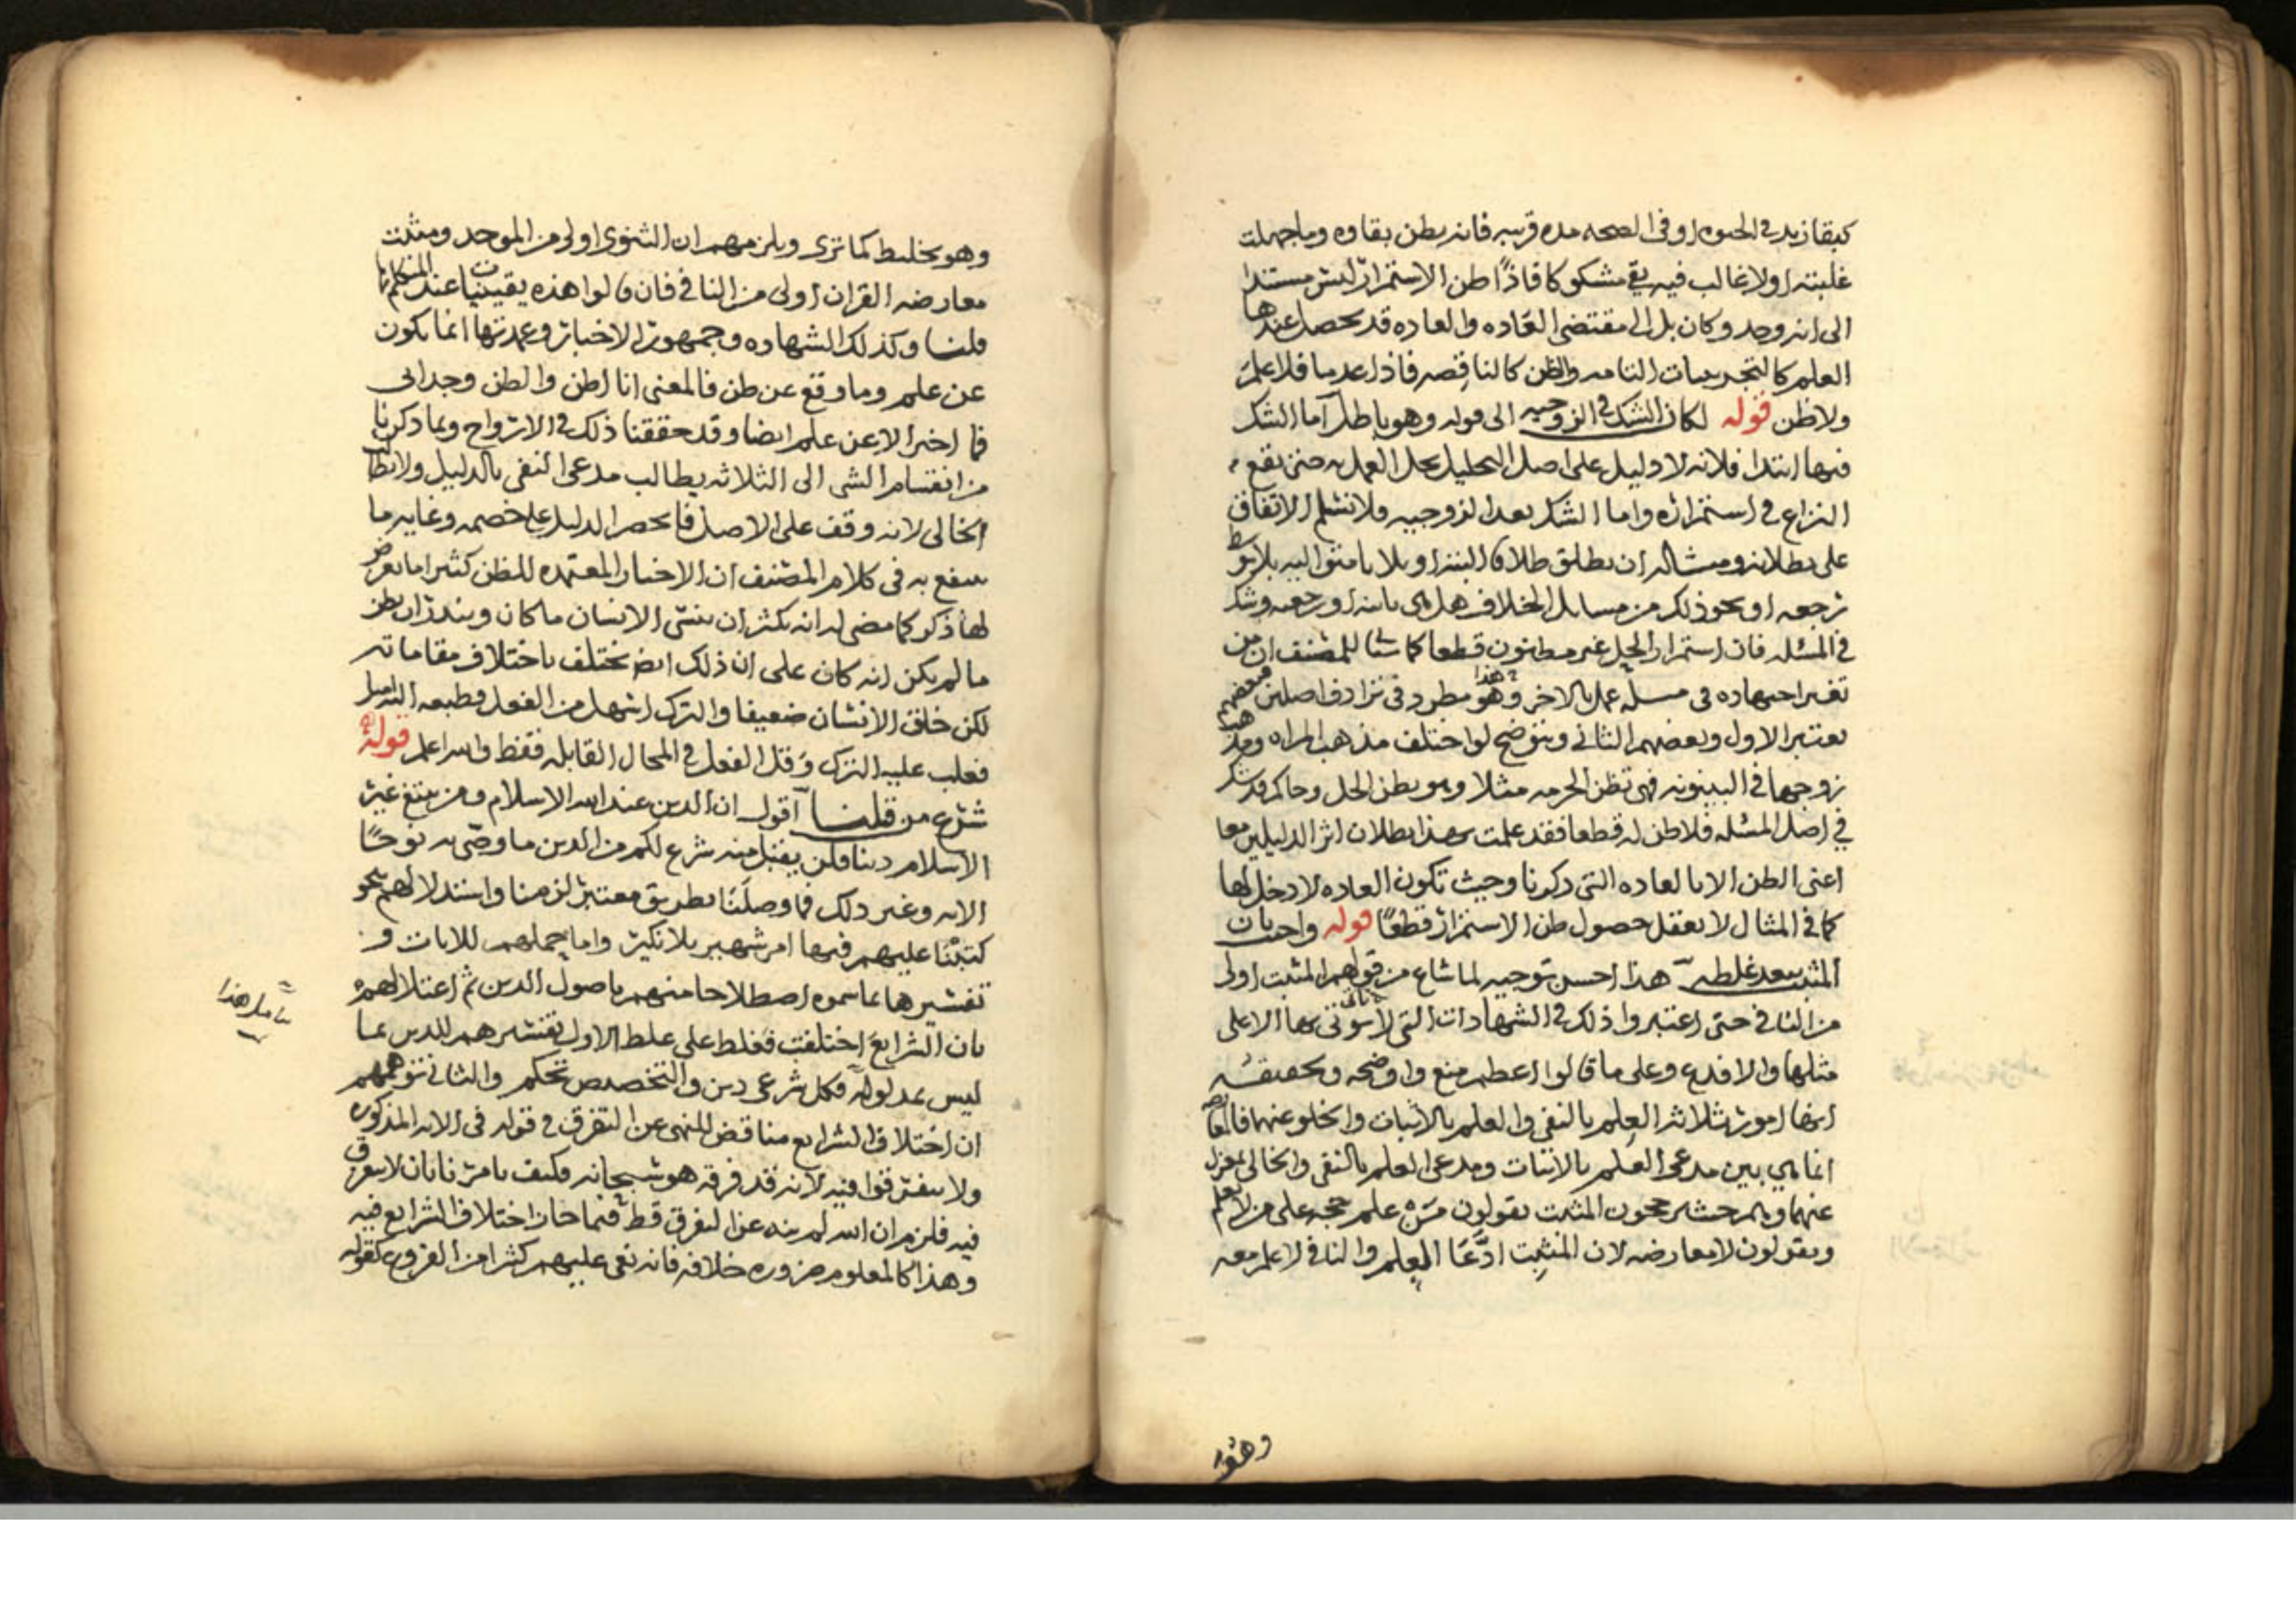 كبقا زيد في الحيوه او في الصحه مده قريبه فانه يظن بقاوه وما جهلت
غلبته او لا غالب فيه بقي مشكوكا فاذًا ظن الاستمرار ليس مستندا
الى انه وجد وكان بل الى مقتضى العاده والعاده قد يحصل عندها
العلم كالتجربيات التامه والظن كالناقصه فاذا عدما فلا علم
ولا ظن قوله لكان الشك في الزوجيه الى قوله وهو باطل اما الشك
فيها ابتدا فلانه لا دليل على اصل التحليل يحل العمل به حتى يقع
النزاع في استمراره واما الشك بعد الزوجيه فلا نسلم الاتفاق
على بطلانه ومثاله ان يطلق طلاق البته او بلانا متواليه بلا توسط
رجعه او نحو ذلك من مسايل الخلاف هل هي باينه او رجعيه وشك
في المسئله فان استمرار الحل غير مظنون قطعا كما ياتي للمصنف ان من
تغير اجتهاده في مسله عمل بالاخر وهو هذا مطرد في ترادف اصلين فبعضهم
يعتبر الاول وبعضهم الثاني ويتوضح لو اختلف مذهب المراه ومذهب
زوجها في البينونه فهي تظن الحرمه مثلا وهو يظن الحل وحاكم قد شك
في اصل المسئله فلا ظن له قطعا فقد علمت بهذا بطلان اثر الدليلين معا
اعنى الظن الا بالعاده التي ذكرنا وحيث تكون العاده لا دخل لها
كما في المثال لا يعقل حصول ظن الاستمرار قطعًا قوله واجيب بان
المثبت يبعد غلطه هذا احسن توجيه لما شاع من قولهم المثبت اولى
من النافي حتى اعتبروا ذلك في الشهادات التي لا يوتى بها الا على
مثلها والا فدع وعلى ما قالوا اعظم منع واوضحه وتحقيقه
انها امور ثلاثه العلم بالنفي والعلم بالاثبات والخلو عنهما فالتعارض
انما هي بين مدعى العلم بالاثبات ومدعى العلم بالنفي والخالي بمعزل
عنهما وهم حيث يرجحون المثبت يقولون من علم حجه على من لا يعلم
ويقولون لا معارضه لان المثبت ادَّعَا العلم والنافي لا علم معه
وهو
وهو تخليط كما ترى ويلزمهم ان الثنوى اولى من الموحد ومثبت
معارضه القران اولى من النافي فان قالوا هذه يقينيات عندنا
قلنا وكذلك الشهاده وجمهور الاخبار وعمدتها انما يكون
عن علم وما وقع عن ظن فالمعنى انا اظن والظن وجداني
فما اخبر الا عن علم ايضا وقد حققنا ذلك في الارواح وبما ذكرنا
من انقسام الشي الى الثلاثه يطالب مدعى النفي بالدليل ولا يطالب
الخالى لانه وقف على الاصل فانحصر الدليل على خصمه وغايه ما
ينتفع به في كلام المصنف ان الاخبار المعتمده للظن كثيرا ما يعرض
لها ذكر كما مضى له انه يكثر ان ينسى الانسان ما كان ويندر ان يظن
ما لم يكن انه كان على ان ذلك ايض يختلف باختلاف مقاماته
لكن خلق الانسان ضعيفا والترك اسهل من الفعل فطبعه التساهل
فغلب عليه الترك وقل الفعل في المحال القابله فقط والله اعلم قوله
شرع من قبلنا اقول ان الدين عند الله الاسلام ومن يبتغ غير
الاسلام دينا فلن يقبل منه شرع لكم من الدين ما وصّى به نوحًا
الايه وغير ذلك فما وصلنا بطريق معتبر لزمنا واستدلالهم بنحو
كتبنا عليهم فيها امر شهير بلا نكير واما حملهم للايات و
تفسيرها بما سموه اصطلاحا منهم باصول الدين ثم اعتلالهم
بان الشرايع اختلفت فغلط على غلط الاول تفسيرهم للدين بما
ليس مدلوله فكل شرعى دين والتخصيص تحكم والثاني توهمهم
ان اختلاف الشرايع مناقض للنهى عن التفرق في قوله في الايه المذكوره
ولا تتفرقوا فيه لانه قد فرقه هو سبحانه وكيف يامرنا بان لا نتفرق
فيه فلزم ان الله لم ينه عن التفرق قط فيما جاز اختلاف الشرايع فيه
وهذا كالمعلوم ضروره خلافه فانه نعى عليهم كثيرا من الفروع كقوله
تامل هذا